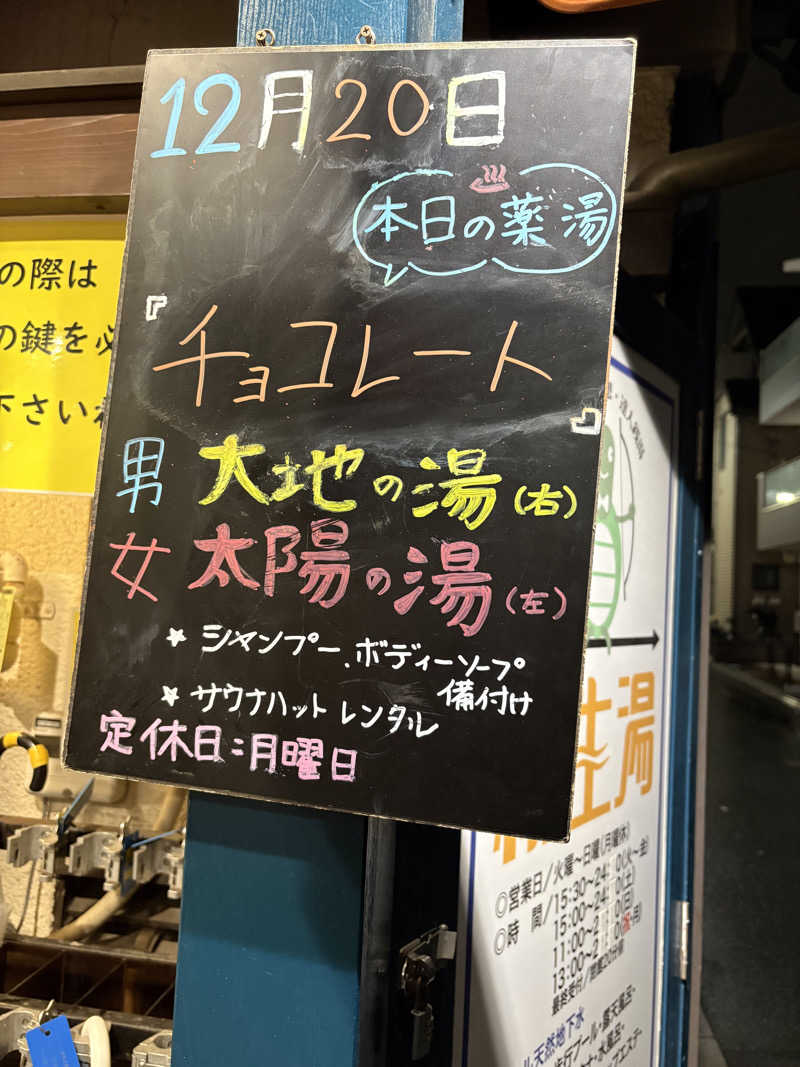 12月20日
本日の薬湯
『チョコレート』
男 大地の湯(右)
女 太陽の湯(左)
★ シャンプー、ボディーソープ
備付け
★ サウナハット レンタル
定休日:月曜日
の際は
の鍵を必
下さい
湯
◎営業日/火曜〜日曜(月曜休)
◎時 間/15:30〜24
15:00〜24
11:00〜2
13:00〜2
最終受付/閉館20分前
天然地下水
歩行プール・露天風呂・
水風呂・